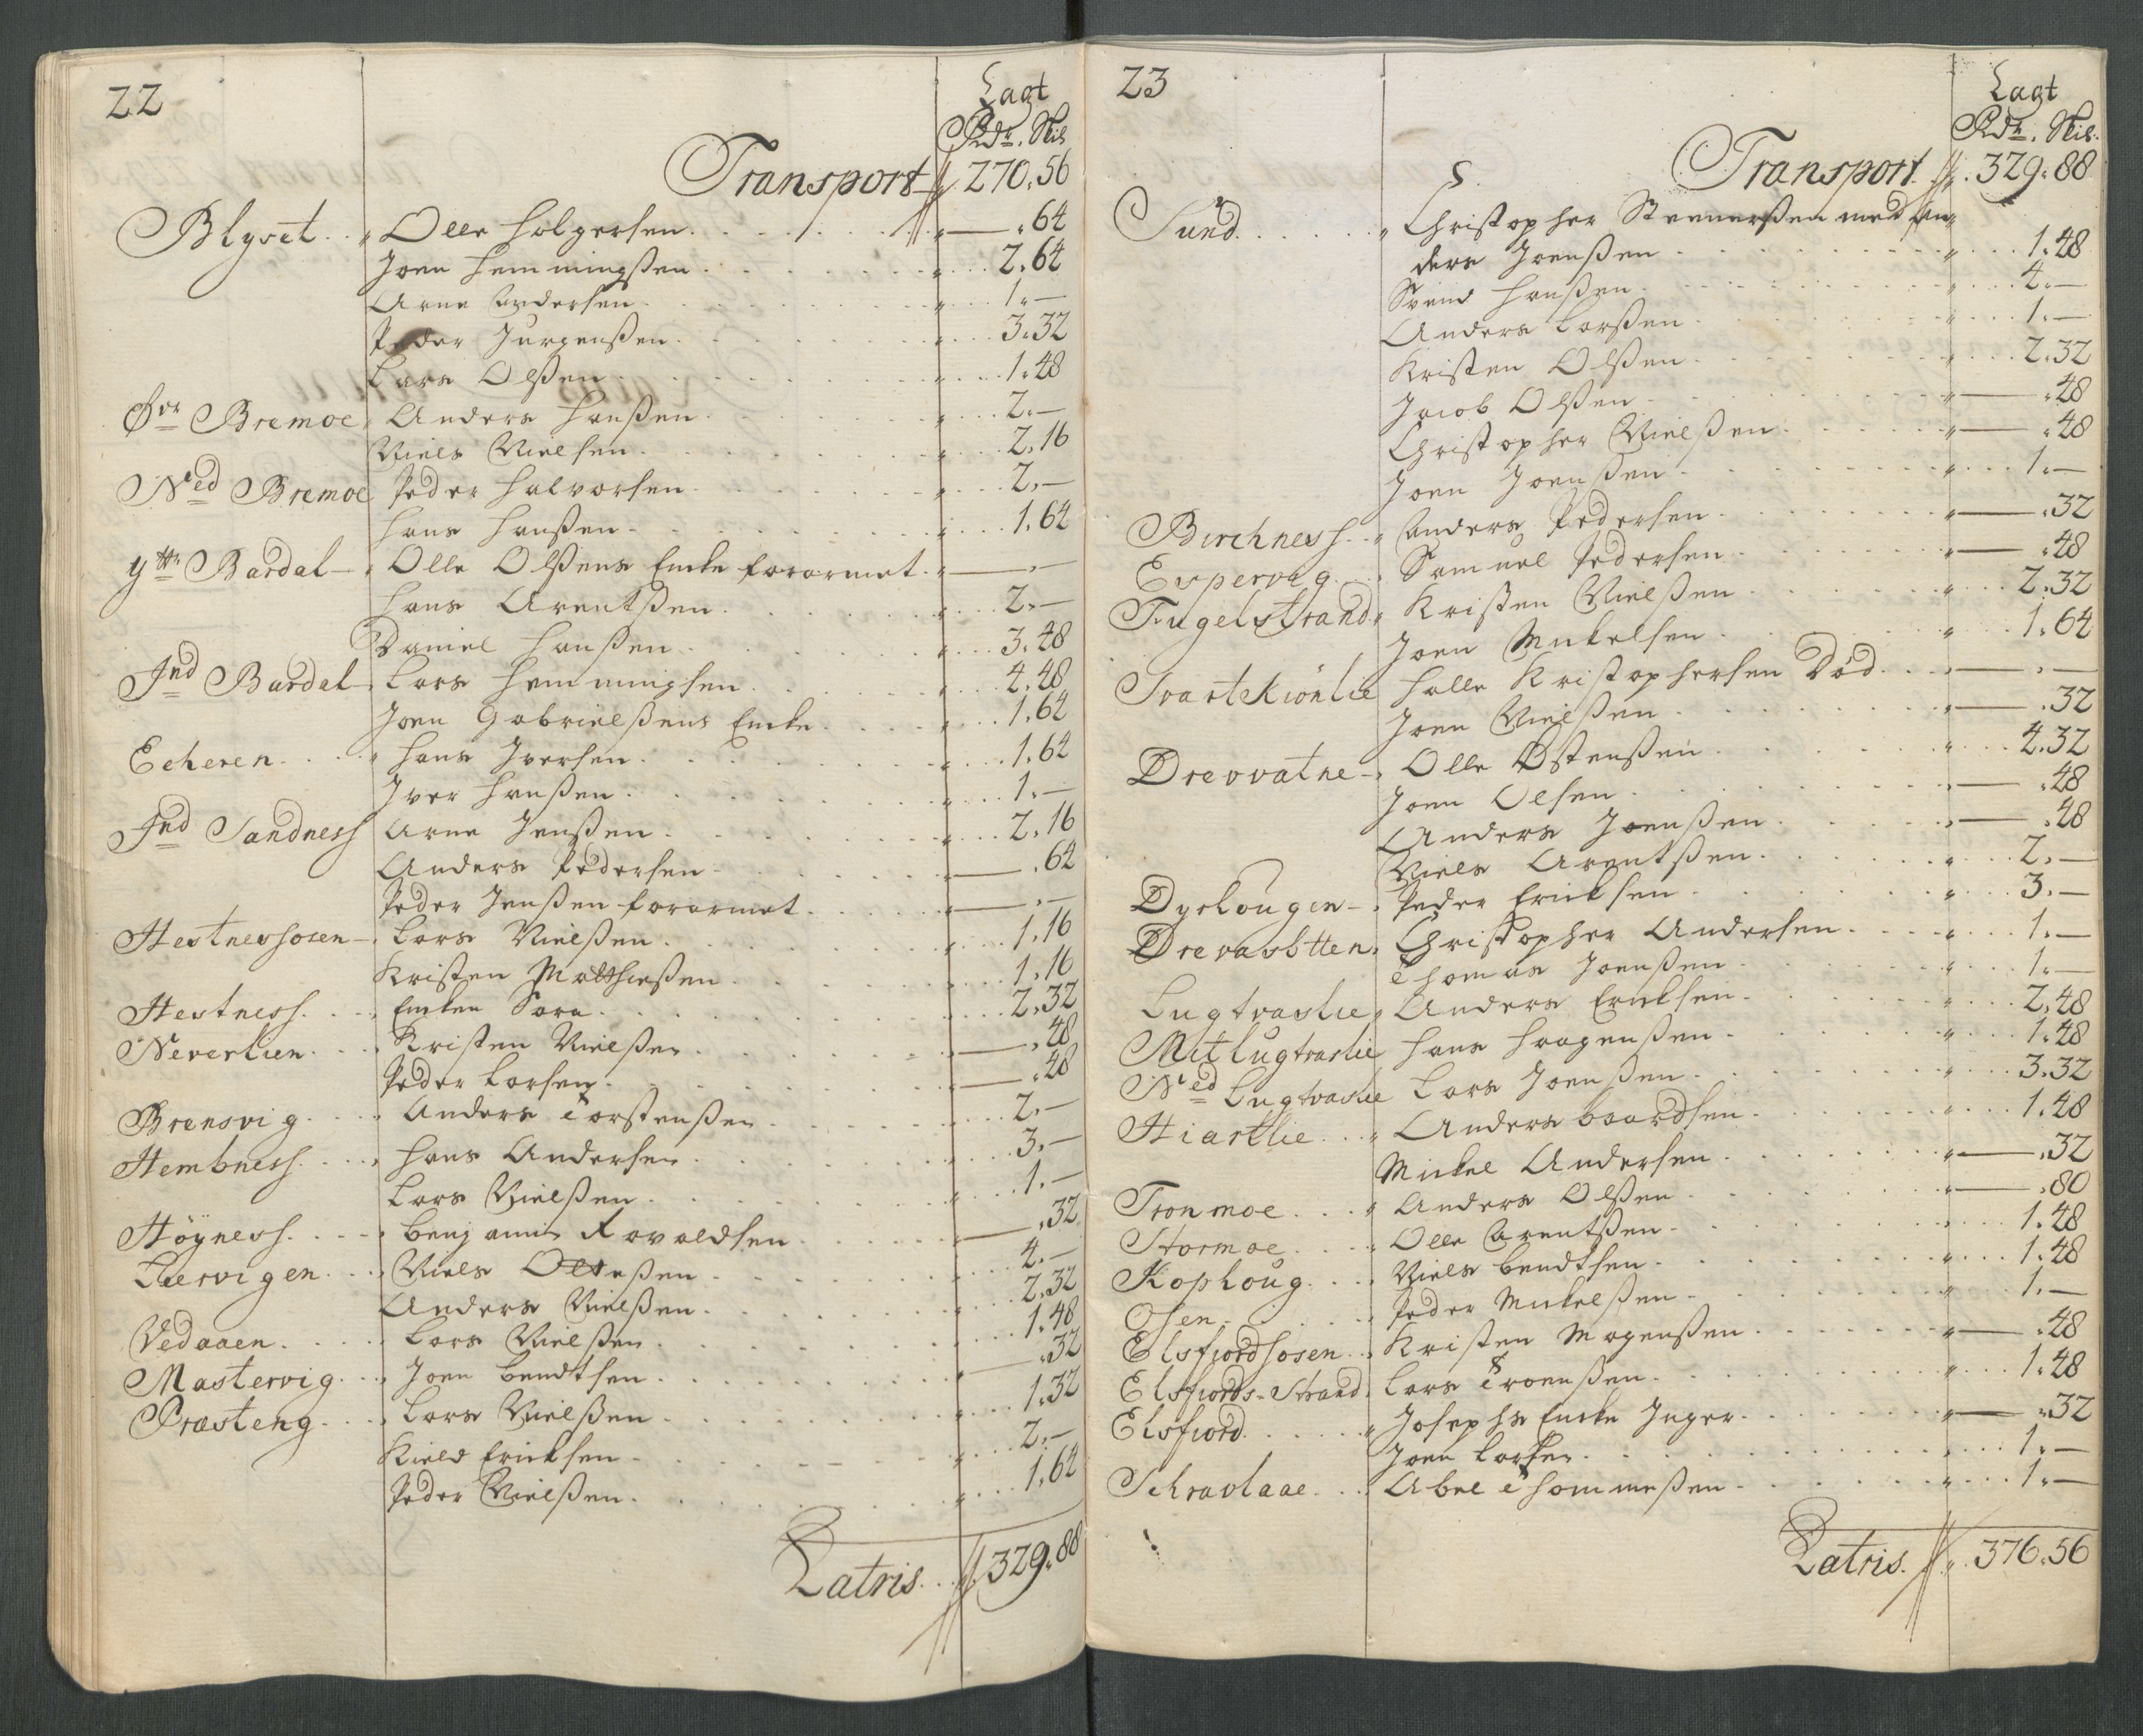 22
Lagt
Rdr. Skil
Transport 270.56
Blyset Olle Holgersen .64
Joen Hemmingßen 2.64
Arne Andersen 1.—
Peder Jurgenßen 3.32
Lars Olßen 1.48
Øvr Bremoe Anders Hanßen 2.—
Niels Nielsen 2.16
Ned Bremoe Peder Halvorsen 2.—
Hans Hanßen 1.64
Ytt Bardal Olle Olßens Encke forarmet —.—
Hans Arentßen 2.—
Daniel Hanßen 3.48
Ind Bardal Lars Hemmingsen 4.48
Joen Gabrielßens Encke 1.64
Echeren Hans Iversen 1.64
Iver Hanßen 1.—
Ind Sandness Arne Jenßen 2.16
Anders Pedersen .64
Peder Jenßen forarmet —.—
Hestnessosen Lars Nielßen 1.16
Kristen Matthießen 1.16
Hestness Encken Sara 2.32
Neverlien Kristen Nielßen .48
Peder Larsen .48
Brensvig Anders Torstenßen 2.—
Hembness Hans Andersen 3.—
Lars Nielßen 1.—
Höyness Benjamin Ravaldsen .32
Leervigen Niels Olleßen 4.—
Anders Nielßen 2.32
Vedaaen Lars Nielßen 1.48
Mastervig Joen Bendtsen .32
Præsteng Lars Nielßen 1.32
Kield Ericksen 2.—
Peder Nielßen 1.64
Latris 329.88
23
Lagt
Rdr. Skil.
Transport 329.88
Sund Christopher Steenerßen med An
ders Joenßen 1.48
Svend Hanßen 4.—
Anders Larßen 1.—
Kristen Olßen 2.32
Jacob Olßen .48
Christopher Nielßen .48
Joen Joenßen 1.—
Birchness Anders Pedersen .32
Espervig Samuel Pedersen .48
Fugelstrand Kristen Nielßen 2.32
Joen Mickelsen 1.64
Svartekiönlie Halle Kristophersen Død —.—
Joen Nielßen .32
Drevvatne Olle Østenßen 4.32
Joen Olsen .48
Anders Joenßen .48
Niels Arentßen 2.—
Dyrhougen Peder Ericksen 3.—
Drevasötten Christopher Andersen 1.—
Thomas Joenßen 1.—
Lugtvaslie Anders Ericksen 2.48
Mit Lugtvaslie Hans Haagenßen 1.48
Ned Lugtvaslie Lars Joenßen 3.32
Hiartlie Anders Baardsen 1.48
Mickel Andersen .32
Tronmoe Anders Olßen .80
Stormoe Olle Arentßen 1.48
Kophoug Niels Bendtsen 1.48
Osen Peder Mickelßen 1.—
Elsfiordsosen Kristen Mogenßen .48
Elsfiords-Strand Lars Troenßen 1.48
Elsfiord Josephs Encke Inger .32
Joen Larsen 1.—
Schravlaae Abel Thommeßen 1.—
Latris 376.56